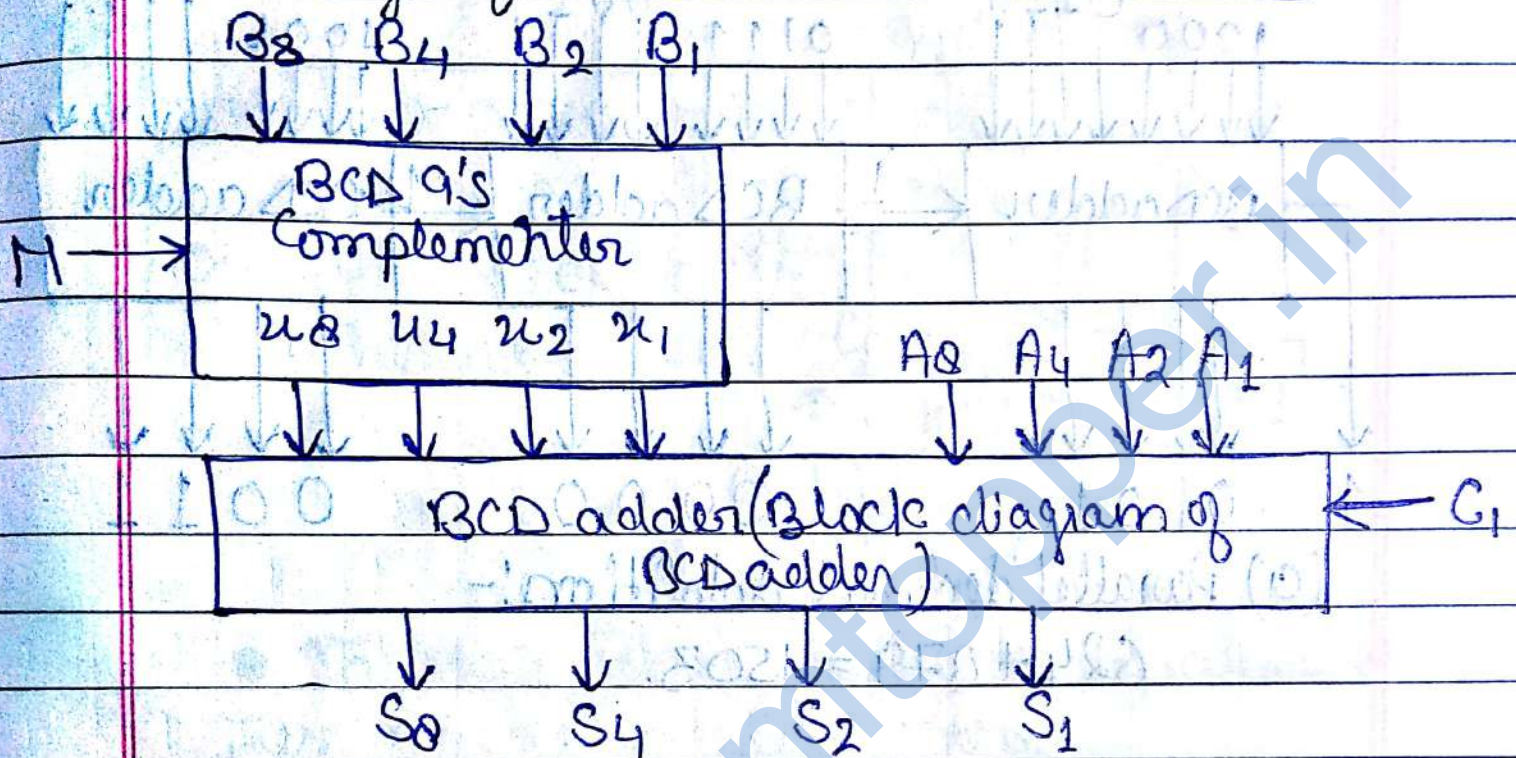 B8 B4 B2 B1
BCD 9's
M
Complementer
x8 x4 x2 x1
A8 A4 A2 A1
BCD adder (Block diagram of
BCD adder)
C1
S8 S4 S2 S1
mtopper.in